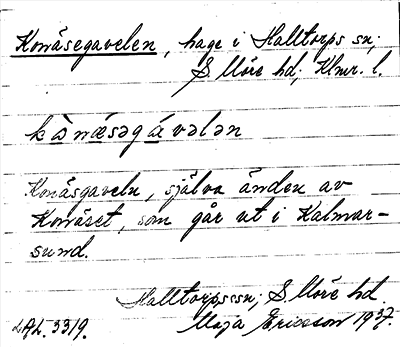 Konäsegavelen, hage i Halltorps sn;
S Möre hd; Klmr. l.
kònǽsəgávələn
Konäsgaveln, själva änden av
Konäset, som går ut i Kalmar-
sund.
Halltorpssn; S Möre hd.
LAL. 3319. Maja Ericsson 1937.